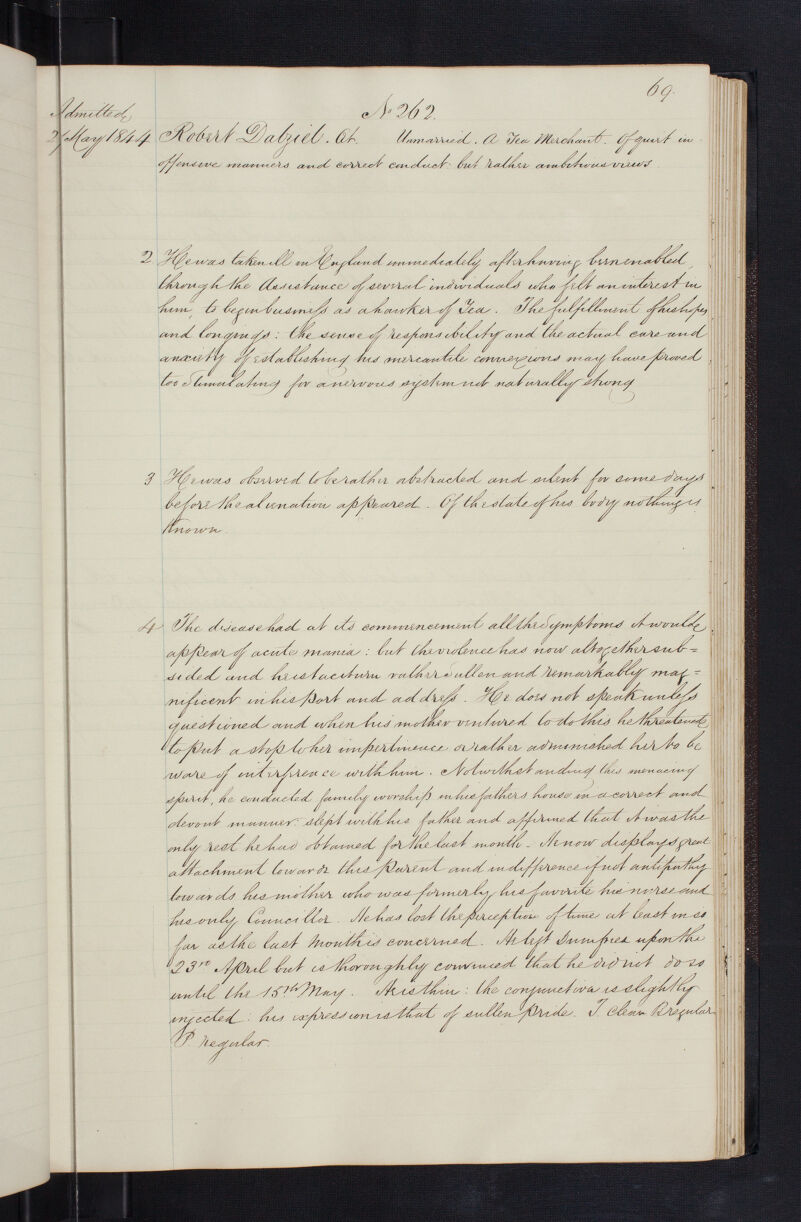 69.
Admitted
No 262.
May 1844 Robert Dalziel. Æt. Unmarried. A Tea Merchant. Of quiet in
offensive manners and correct conduct but rather ambitious views
2 He was taken ill in England immediately after having been enabled
through the Assistance of several individuals who felt an interest in
him, to begin business as a hawker of Tea. The fulfillment of his hopes
and longings: the sense of responsibility and the actual care and
anxiety of establishing his mercantile connexions may have proved
too stimulating for a nervous system not naturally strong
3 He was observed to be rather abstracted and silent for some days
before the alienation appeared. Of the state of his body nothing is
known.
4 The disease had at its commencement all the symptoms it would
appear of acute mania: but the violence has now altogether sub=
sided and he is taciturn rather sullen and remarkably mag=
nificent in his port and address. He does not speak unless
questioned and when his mother ventured to do this he threatened
to put a stop to her impertinence or rather admonished her to be
ware of interference with him. Notwithstanding this menacing
spirit, he conducted family worship in his fathers house in a correct and
devout manner: slept with his father and affirmed that it was the
only rest he had obtained for the last month. He now displays great
attachment towards this parent and indifference if not antipathy
towards his mother who was formerly his favorite his nurse and
his only Councillor. He has lost the perception of time at least in so
far as the last month is concerned. He left Dumfries upon the
23rd April but is thoroughly convinced that he did not do so
until the 15th May. He is thin: the conjunctiva is slightly
injected: his expression is that of sullen pride. T. clean B regular
P regular.